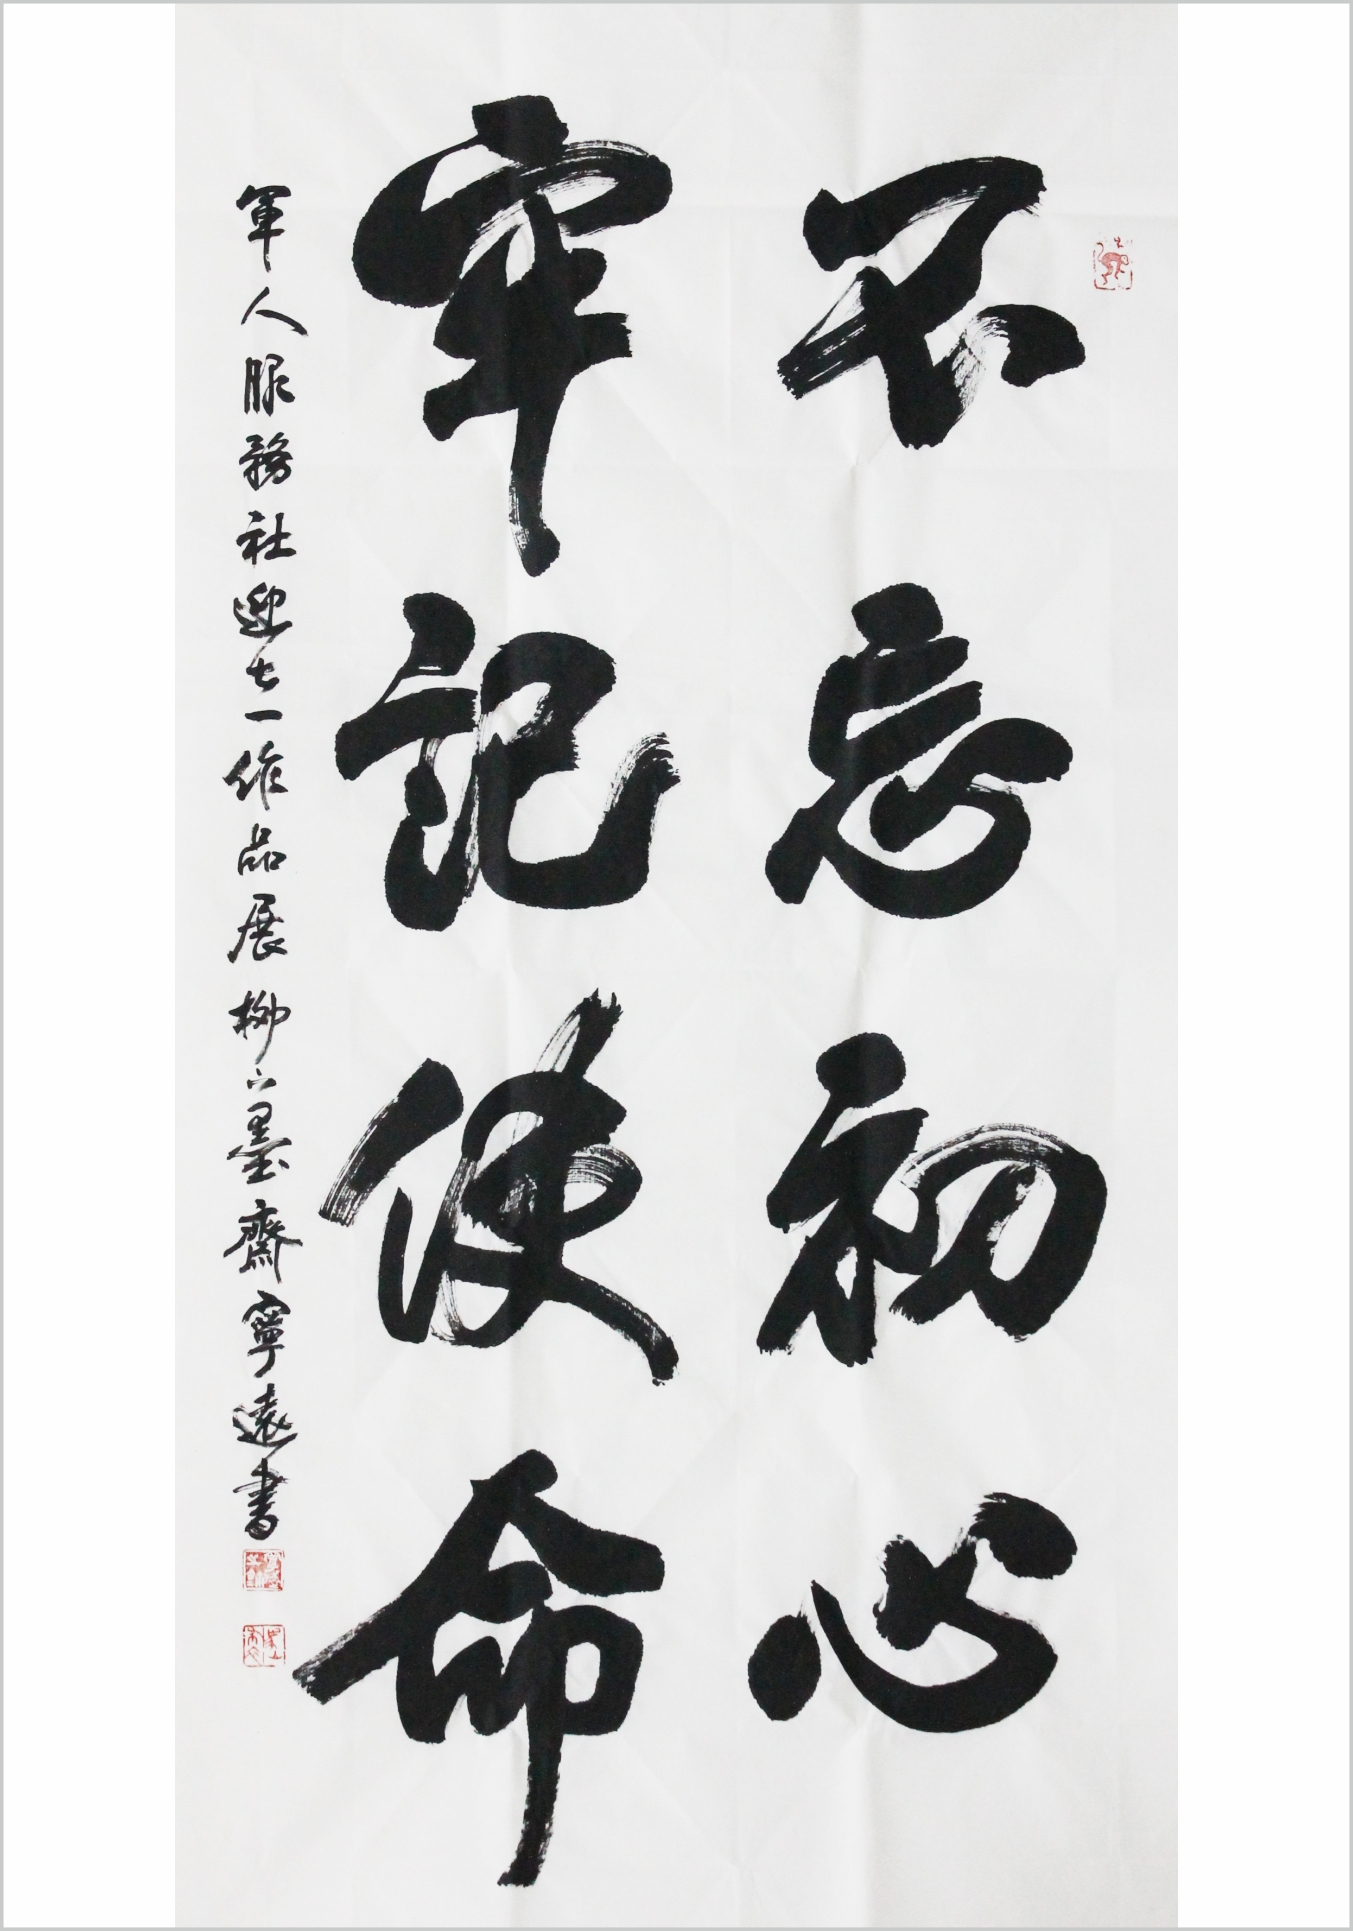 不忘初心
牢记使命
軍人服務社迎七一作品展柳墨齋寧遠書